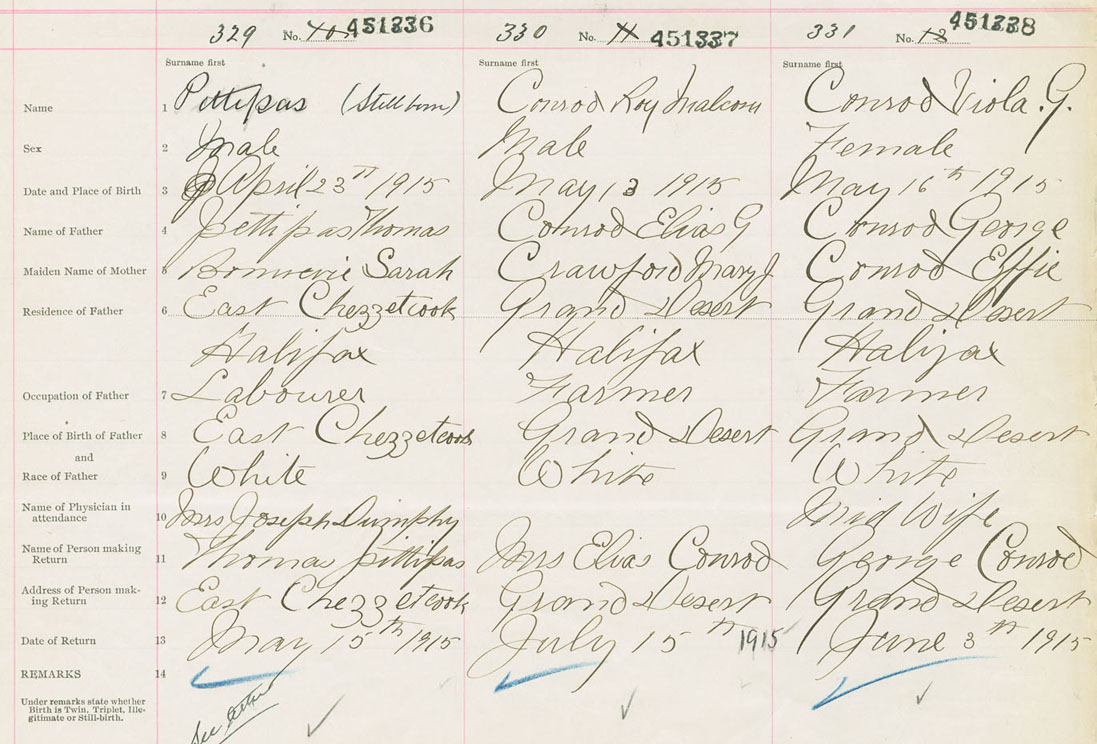 329 No. 10 451336 330 No. 11 451337 331 No. 12 451338
Surname first Surname first Surname first
Name 1 Pettipas (Still born) Conrod Roy Malcom Conrod Viola. G.
Sex 2 Male Male Female
Date and Place of Birth 3 April 23rd 1915 May 13 1915 May 16th 1915
Name of Father 4 pettipas Thomas Conrod Elias G Conrod George
Maiden Name of Mother 5 Sarah Crawford Mary J Conrod Effie
Residence of Father 6 East Chezzetcook Grand Desert Grand Desert
Halifax Halifax Halifax
Occupation of Father 7 Labourer Farmer Farmer
Place of Birth of Father 8 East Chezzetcook Grand Desert Grand Desert
and
Race of Father 9 White White White
Name of Physician in
attendance 10 Mrs Joseph Dumphy Mid Wife
Name of Person making
Return 11 Thomas pittipas Mrs Elias Conrod George Conrod
Address of Person mak-
ing Return 12 East Chezzetcook Grand Desert Grand Desert
Date of Return 13 May 15th 1915 July 15th 1915 June 3rd 1915
REMARKS 14
Under remarks state whether
Birth is Twin, Triplet, Ille-
gitimate or Still-birth.
See letter